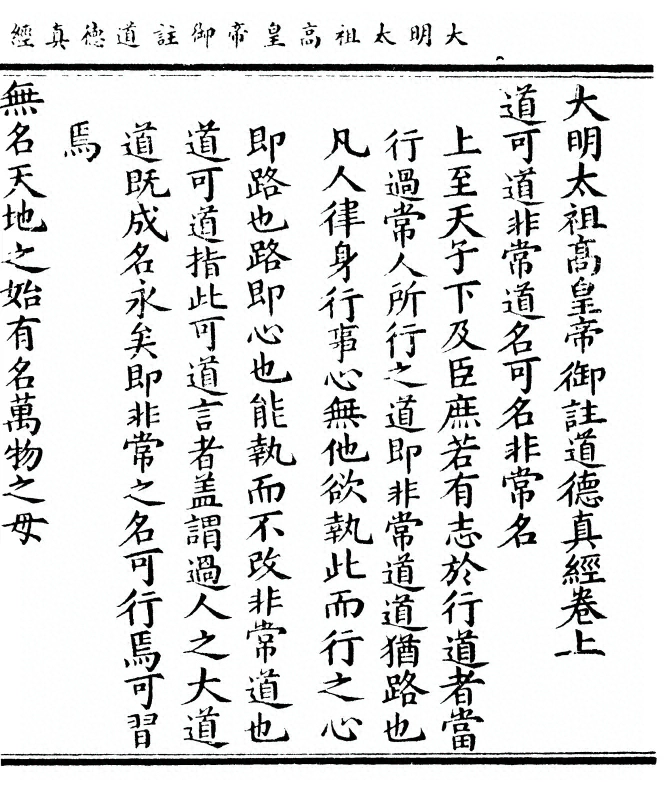 大明太祖高皇帝御註道德真經
大明太祖高皇帝御註道德真經卷上
道可道非常道名可名非常名
上至天子下及臣庶若有志於行道者當
行過常人所行之道即非常道道猶路也
凡人律身行事心無他欲執此而行之心
即路也路即心也能執而不改非常道也
道可道指此可道言者盖謂過人之大道
道既成名永矣即非常之名可行焉可習
焉
無名天地之始有名萬物之母